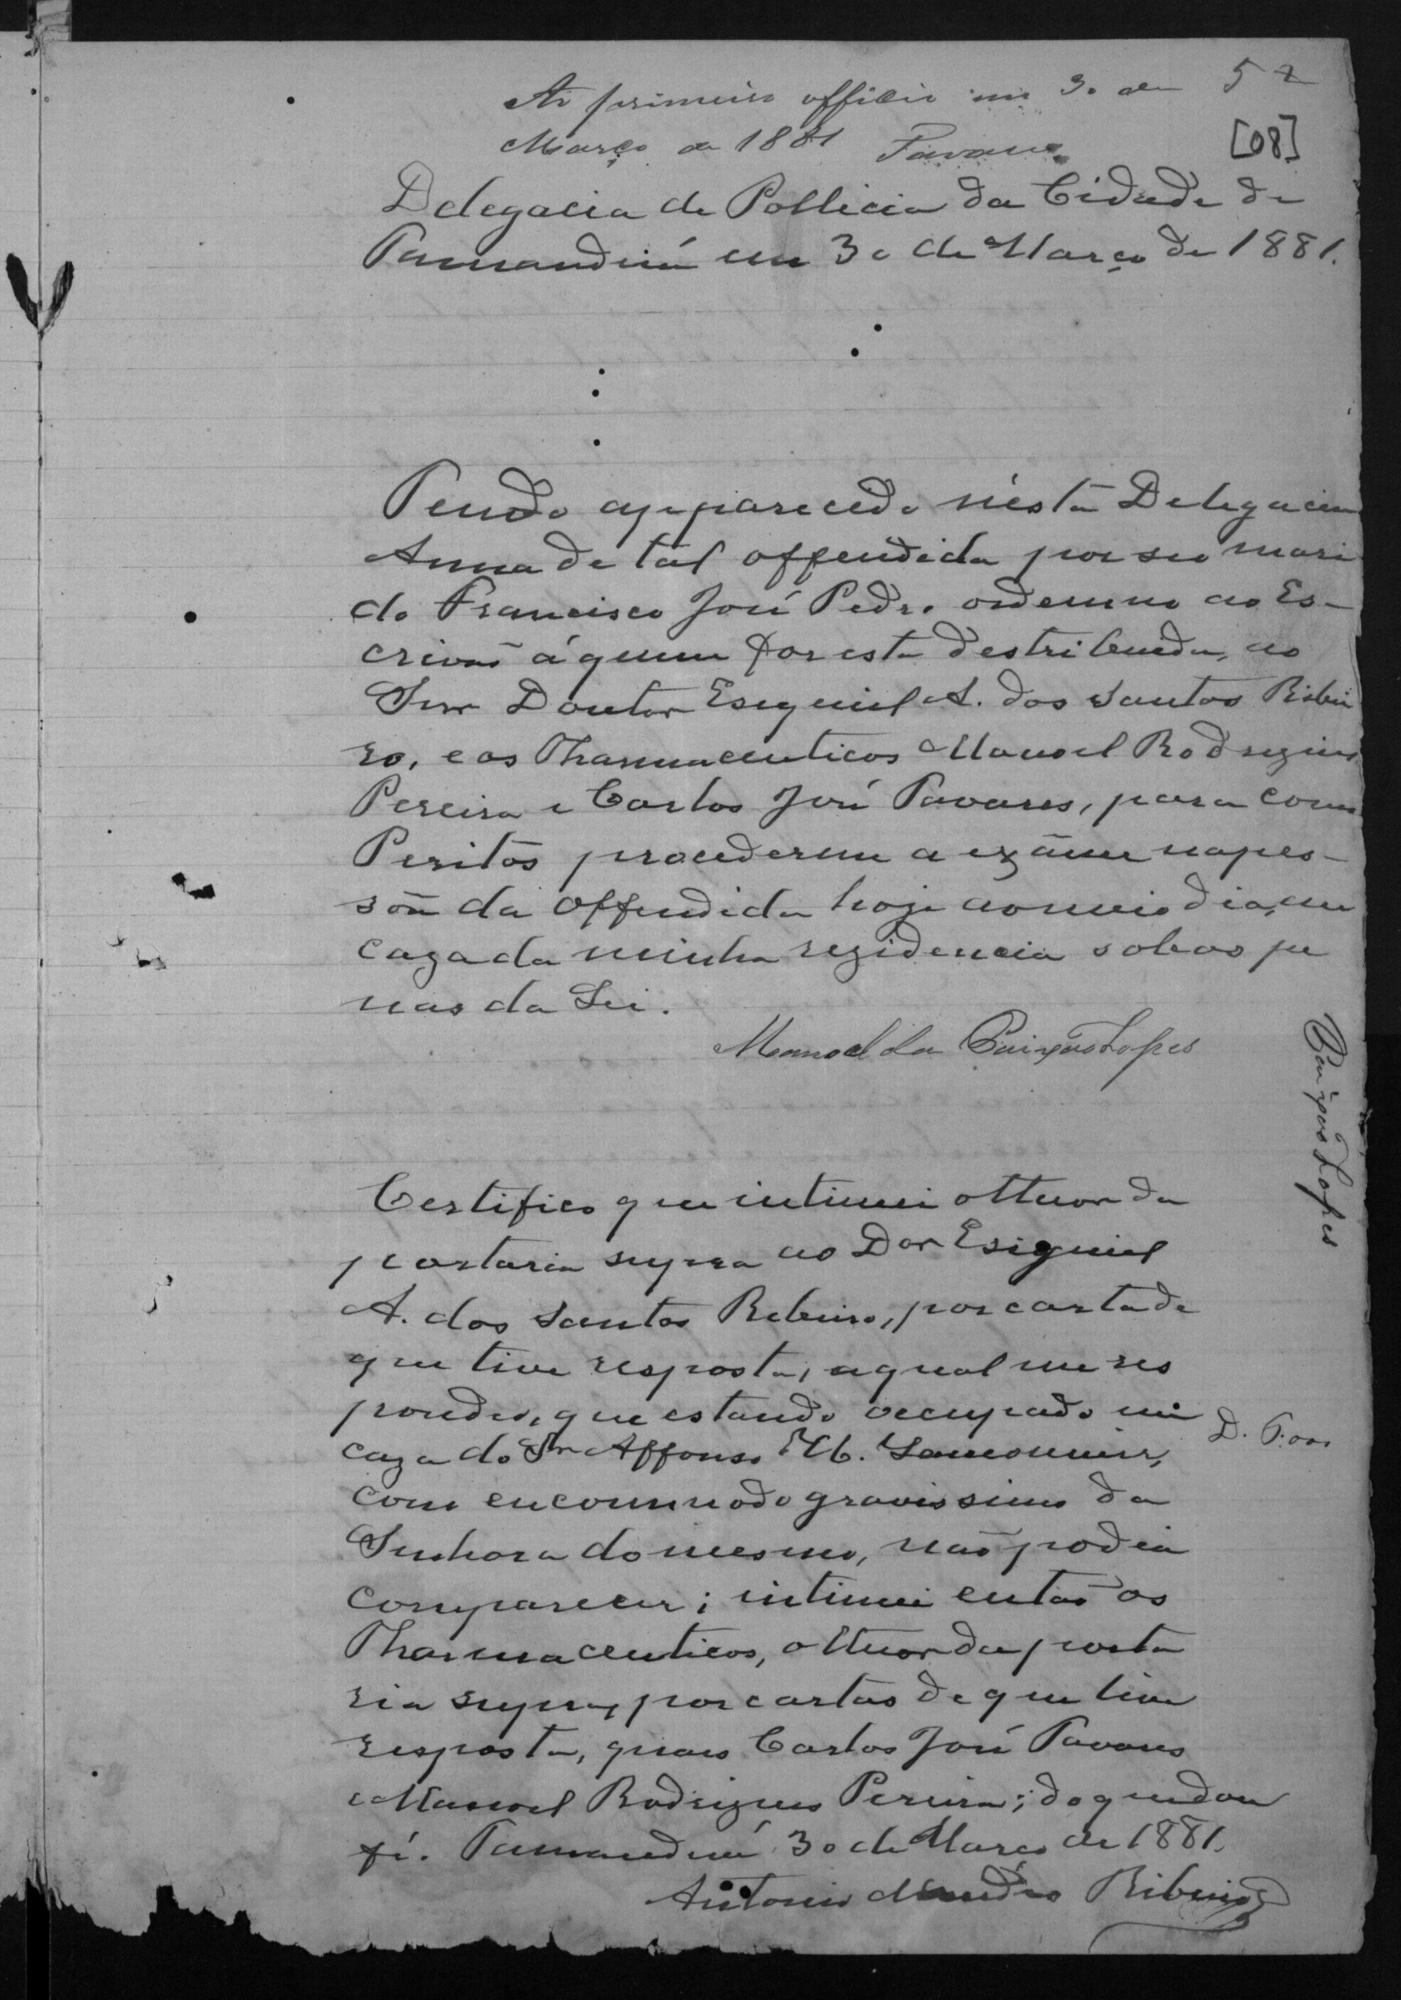 Ao primeiro officio em 30 de
Março de 1881 Tavares
52
[08]
Delegacia de Pollicia da Cidade de
Tamanduá em 30 de Março de 1881.
Tendo apparecido nésta Delegacia
Anna de tal offendida por seo mari
do Francisco José Pedro ordeno ao Es-
crivaõ á quem for esta destribuida, ao
Snr Doutor Esequiel A. dos Santos Ribei
ro, e os Pharmaceuticos Manoel Rodrigues
Pereira e Carlos José Tavares, para como
Peritos procederem a exáme na pes-
sôa da offendida hoje ao meio dia, em
caza da minha rezidencia sob as pe
nas da Lei.
Manoel da Paixão Lopes
Paixão Lopes
Certifico que intimei o theor da
portaria supra ao Dor Esiquiel
A. dos Santos Ribeiro, por carta de
que tive resposta, a qual me res
pondeo, que estando occupado em
caza do Snr Affonso H. Lamounier,
com encommodo gravissimo da
Senhora do mesmo, naõ podia
comparecer; intimei entaõ os
Pharmaceuticos, o theor da porta
ria supra, por cartas de que tive
resposta, quaes Carlos José Tavares
e Manoel Rodrigues Pereira; do que dou
fé. Tamanduá 30 de Março de 1881.
Antonio Ribeiro